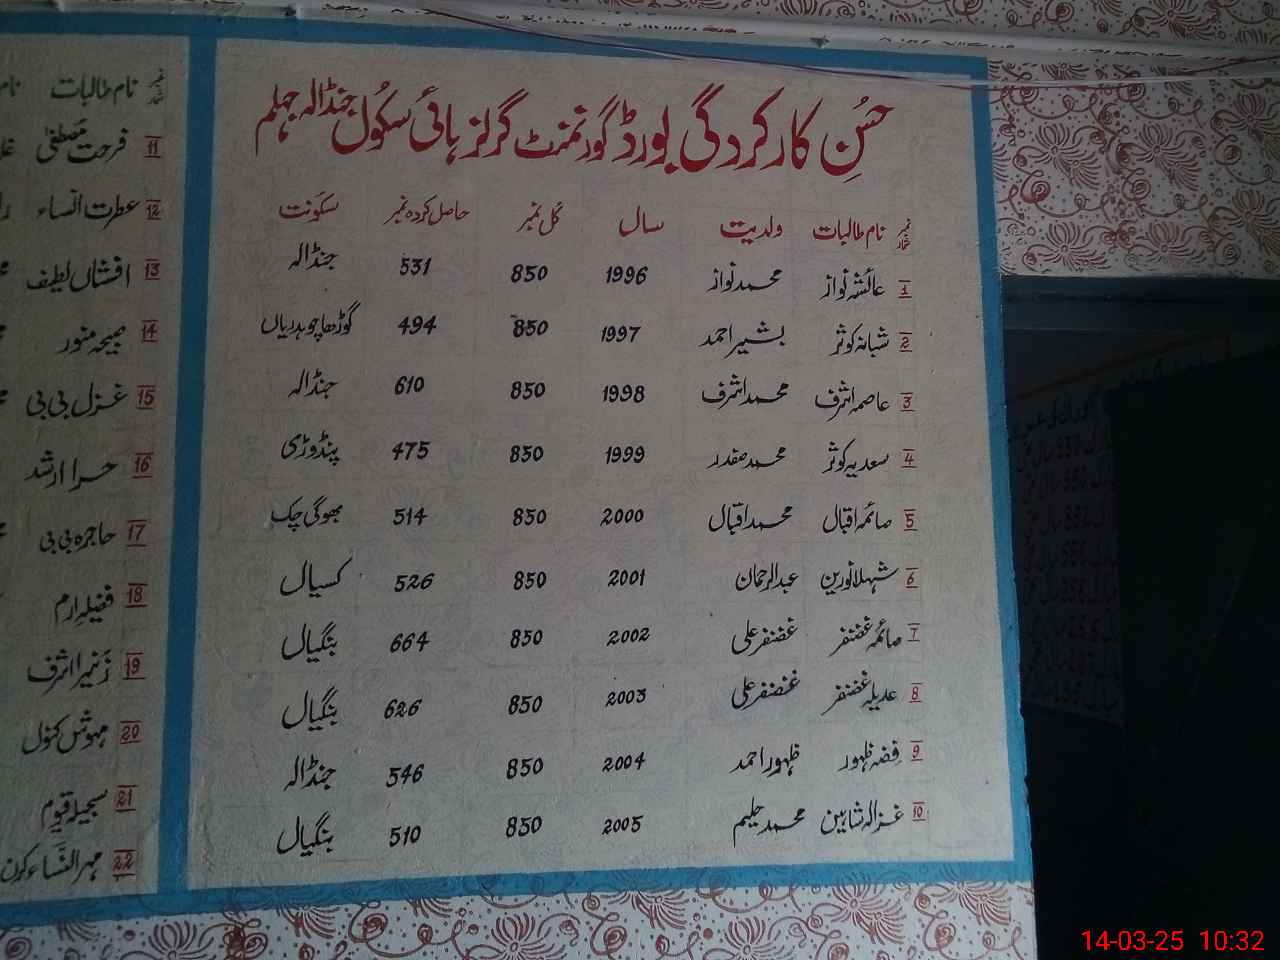 حُسنِ کارکردگی بورڈ گورنمنٹ گرلز ہائی سکُول جنڈالہ جہلم
نمبر شمار نام طالبات ولدیت سال کُل نمبر حاصل کردہ نمبر سکونت
1 عائشہ نواز محمد نواز 1996 850 531 جنڈالہ
2 شبانہ کوثر بشیر احمد 1997 850 494 گوڑھا چوہدریاں
3 عاصمہ اشرف محمد اشرف 1998 850 610 جنڈالہ
4 سعدیہ کوثر محمد صفدر 1999 850 475 پنڈوڑی
5 صائمہ اقبال محمد اقبال 2000 850 514 بھوگی چک
6 شہلا نورین عبدالرحمان 2001 850 526 کسیال
7 صائمہ غضنفر غضنفر علی 2002 850 664 بنگیال
8 عدیلہ غضنفر غضنفر علی 2003 850 626 بنگیال
9 فضہ ظہور ظہور احمد 2004 850 546 جنڈالہ
10 غزالہ شاہین محمد حلیم 2005 850 510 بنگیال
نمبر شمار نام طالبات
11 فرحت مصطفیٰ
12 عطرت النساء
13 افشاں لطیف
14 صبیحہ منور
15 غزل بی بی
16 حرا ارشد
17 حاجرہ بی بی
18 فضیلہ ارم
19 زنیرا اشرف
20 مہوش کنول
21 سجیلہ قیوم
22 مہرالنساء
14-03-25 10:32